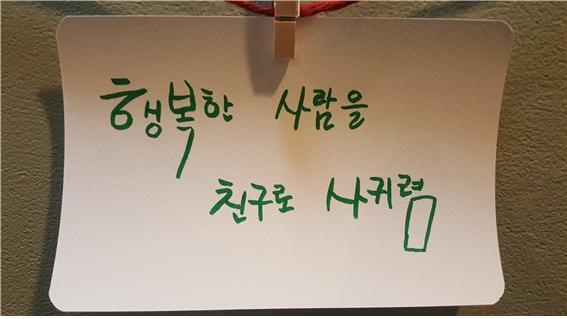 행복한 사람을
친구로 사귀렴